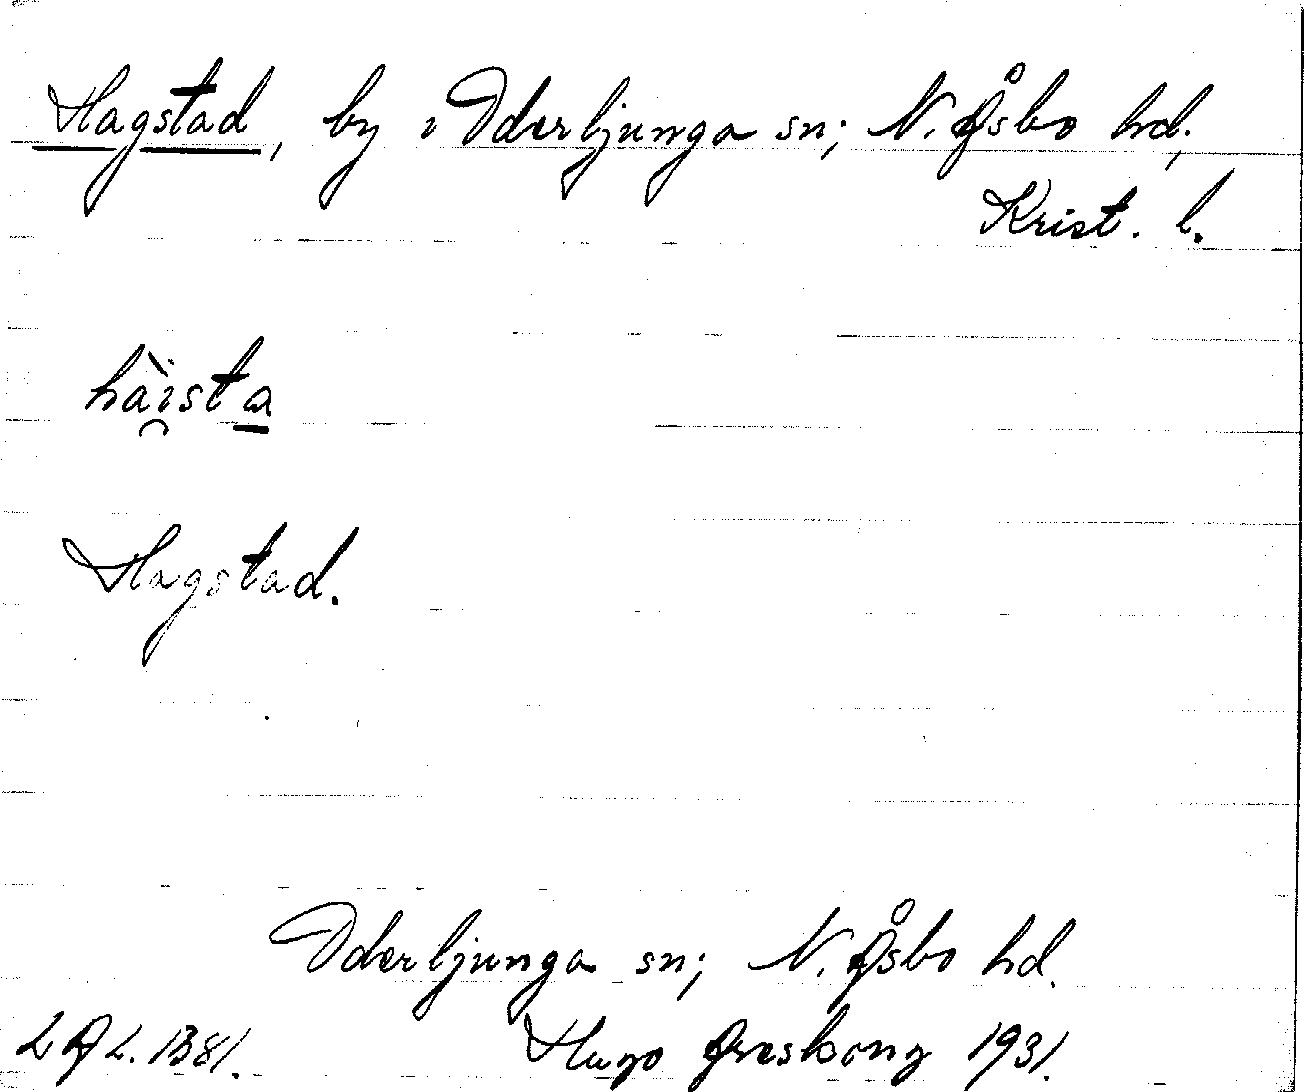 Hagstad, by i Oderljunga sn; N. Åsbo hd,
Krist. l.
hàista
Hagstad.
Oderljunga sn; N. Åsbo hd.
Hugo Areskoug 1931.